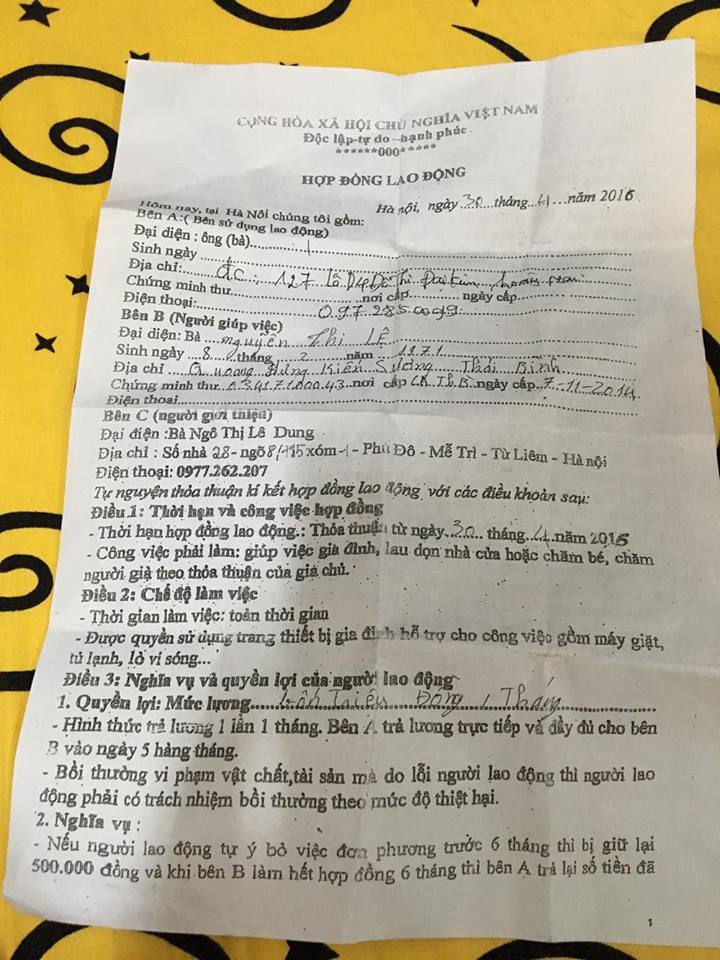 CỘNG HÒA XÃ HỘI CHỦ NGHĨA VIỆT NAM
Độc lập-tự do-hạnh phúc
******000*****
HỢP ĐỒNG LAO ĐỘNG
Hà nội, ngày 30 tháng 4 năm 2016
Hôm nay, tại Hà Nôi chúng tôi gồm:
Bên A:( Bên sử dụng lao động)
Đại diện : ông (bà)
Sinh ngày
Địa chỉ: đc: 127 lô
Chứng minh thư nơi cấp ngày cấp
Điện thoại: 097 285
Bên B (Người giúp việc)
Đại diện: Bà nguyễn Thị LỆ
Sinh ngày 8 tháng 2 năm 1971
Địa chỉ Hưng Kiến Sương Thái Bình
Chứng minh thư nơi cấp ngày cấp 7-11-2014
Điện thoại
Bên C (người giới thiệu)
Đại diện :Bà Ngô Thị Lê Dung
Địa chỉ : Số nhà 28- ngõ xóm-1 - Phú Đô - Mễ Trì - Từ Liêm - Hà nội
Điện thoại: 0977.262.207
Tự nguyện thỏa thuận kí kết hợp đồng lao động với các điều khoản sau:
Điều 1: Thời hạn và công việc hợp đồng
- Thời hạn hợp đồng lao động.: Thỏa thuận từ ngày 30 tháng 4 năm 2016
- Công việc phải làm: giúp việc gia đình, lau dọn nhà cửa hoặc chăm bé, chăm
người già theo thỏa thuận của gia chủ.
Điều 2: Chế độ làm việc
- Thời gian làm việc: toàn thời gian
- Được quyền sử dụng trang thiết bị gia đình hỗ trợ cho công việc gồm máy giặt,
tủ lạnh, lò vi sóng...
Điều 3: Nghĩa vụ và quyền lợi của người lao động
1. Quyền lợi: Mức lương bốn Triệu Đồng / Tháng
- Hình thức trả lương 1 lần 1 tháng. Bên A trả lương trực tiếp và đầy đủ cho bên
B vào ngày 5 hàng tháng.
- Bồi thường vi phạm vật chất,tài sản mà do lỗi người lao động thì người lao
động phải có trách nhiệm bồi thường theo mức độ thiệt hại.
2. Nghĩa vụ :
- Nếu người lao động tự ý bỏ việc đơn phương trước 6 tháng thì bị giữ lại
500.000 đồng và khi bên B làm hết hợp đồng 6 tháng thì bên A trả lại số tiền đã
1